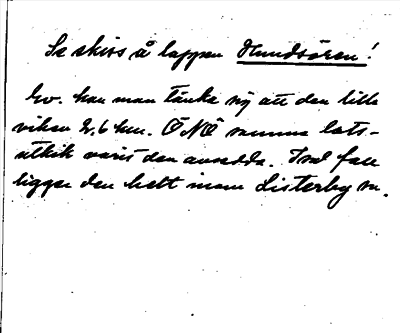 Se skiss å lappen Hundsören!
Ev. kan man tänka sig att den lilla
viken 2,6 km. ÖNÖ samma lots-
utkik varit den avsedda. I så fall
ligger den helt inom Listerby sn.